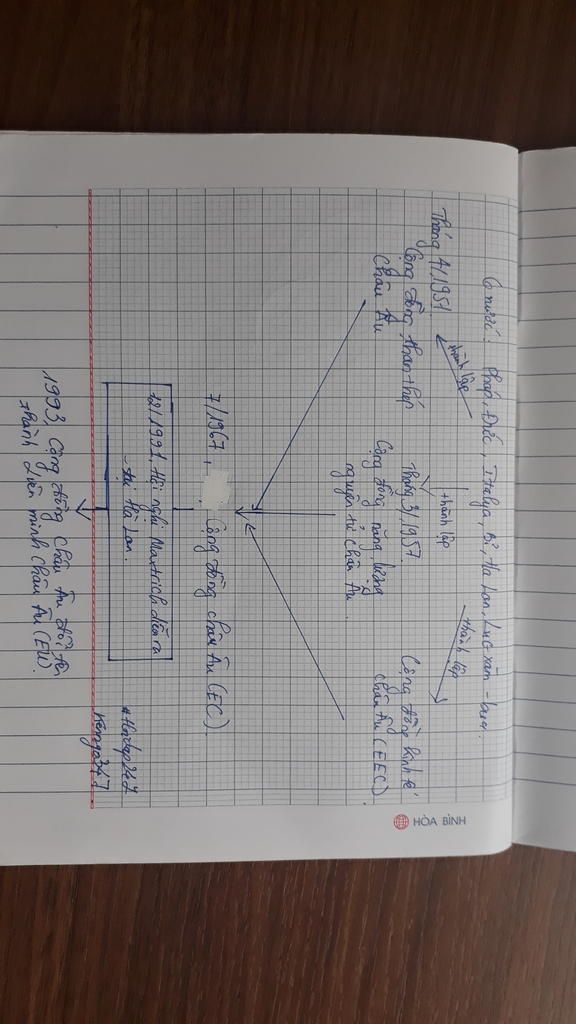 6 nước: Pháp, Đức, Italya, Bỉ, Hà Lan, Luc-xăm-bua.
thành lập
thành lập
thành lập
Tháng 4/1951
Cộng đồng than thép
Châu Âu
Tháng 3/1957
Cộng đồng năng lượng
nguyên tử Châu Âu.
Cộng đồng kinh tế
châu Âu (EEC).
7/1967, Cộng đồng châu Âu (EC).
12/1991, Hội nghị Maxtrich diễn ra
tại Hà Lan.
1993, Cộng đồng châu Âu đổi tên
thành Liên minh Châu Âu (EU).
#Hoidap247
Kemga347
HÒA BÌNH